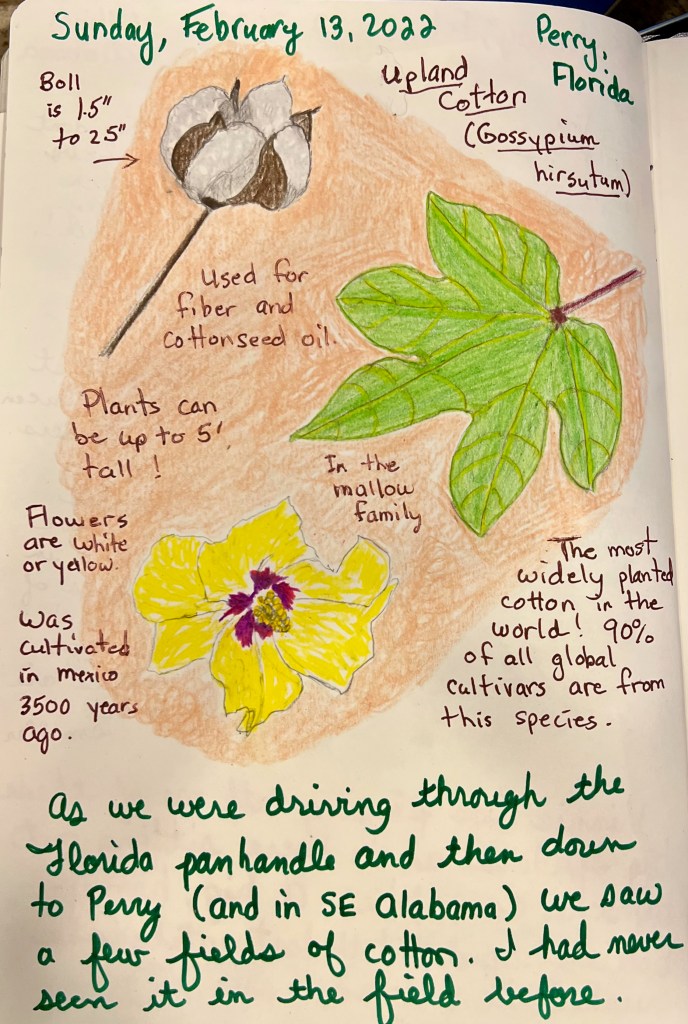 Sunday, February 13, 2022
Perry,
Florida
Boll
is 1.5"
to 25"
Upland
Cotton
(Gossypium
hirsutum)
Used for
fiber and
cottonseed oil.
Plants can
be up to 5'
tall!
In the
mallow
family
Flowers
are white
or yellow.
Was
cultivated
in mexico
3500 years
ago.
The most
widely planted
cotton in the
world! 90%
of all global
cultivars are from
this species.
As we were driving through the
Florida panhandle and then down
to Perry (and in SE Alabama) we saw
a few fields of cotton. I had never
seen it in the field before.